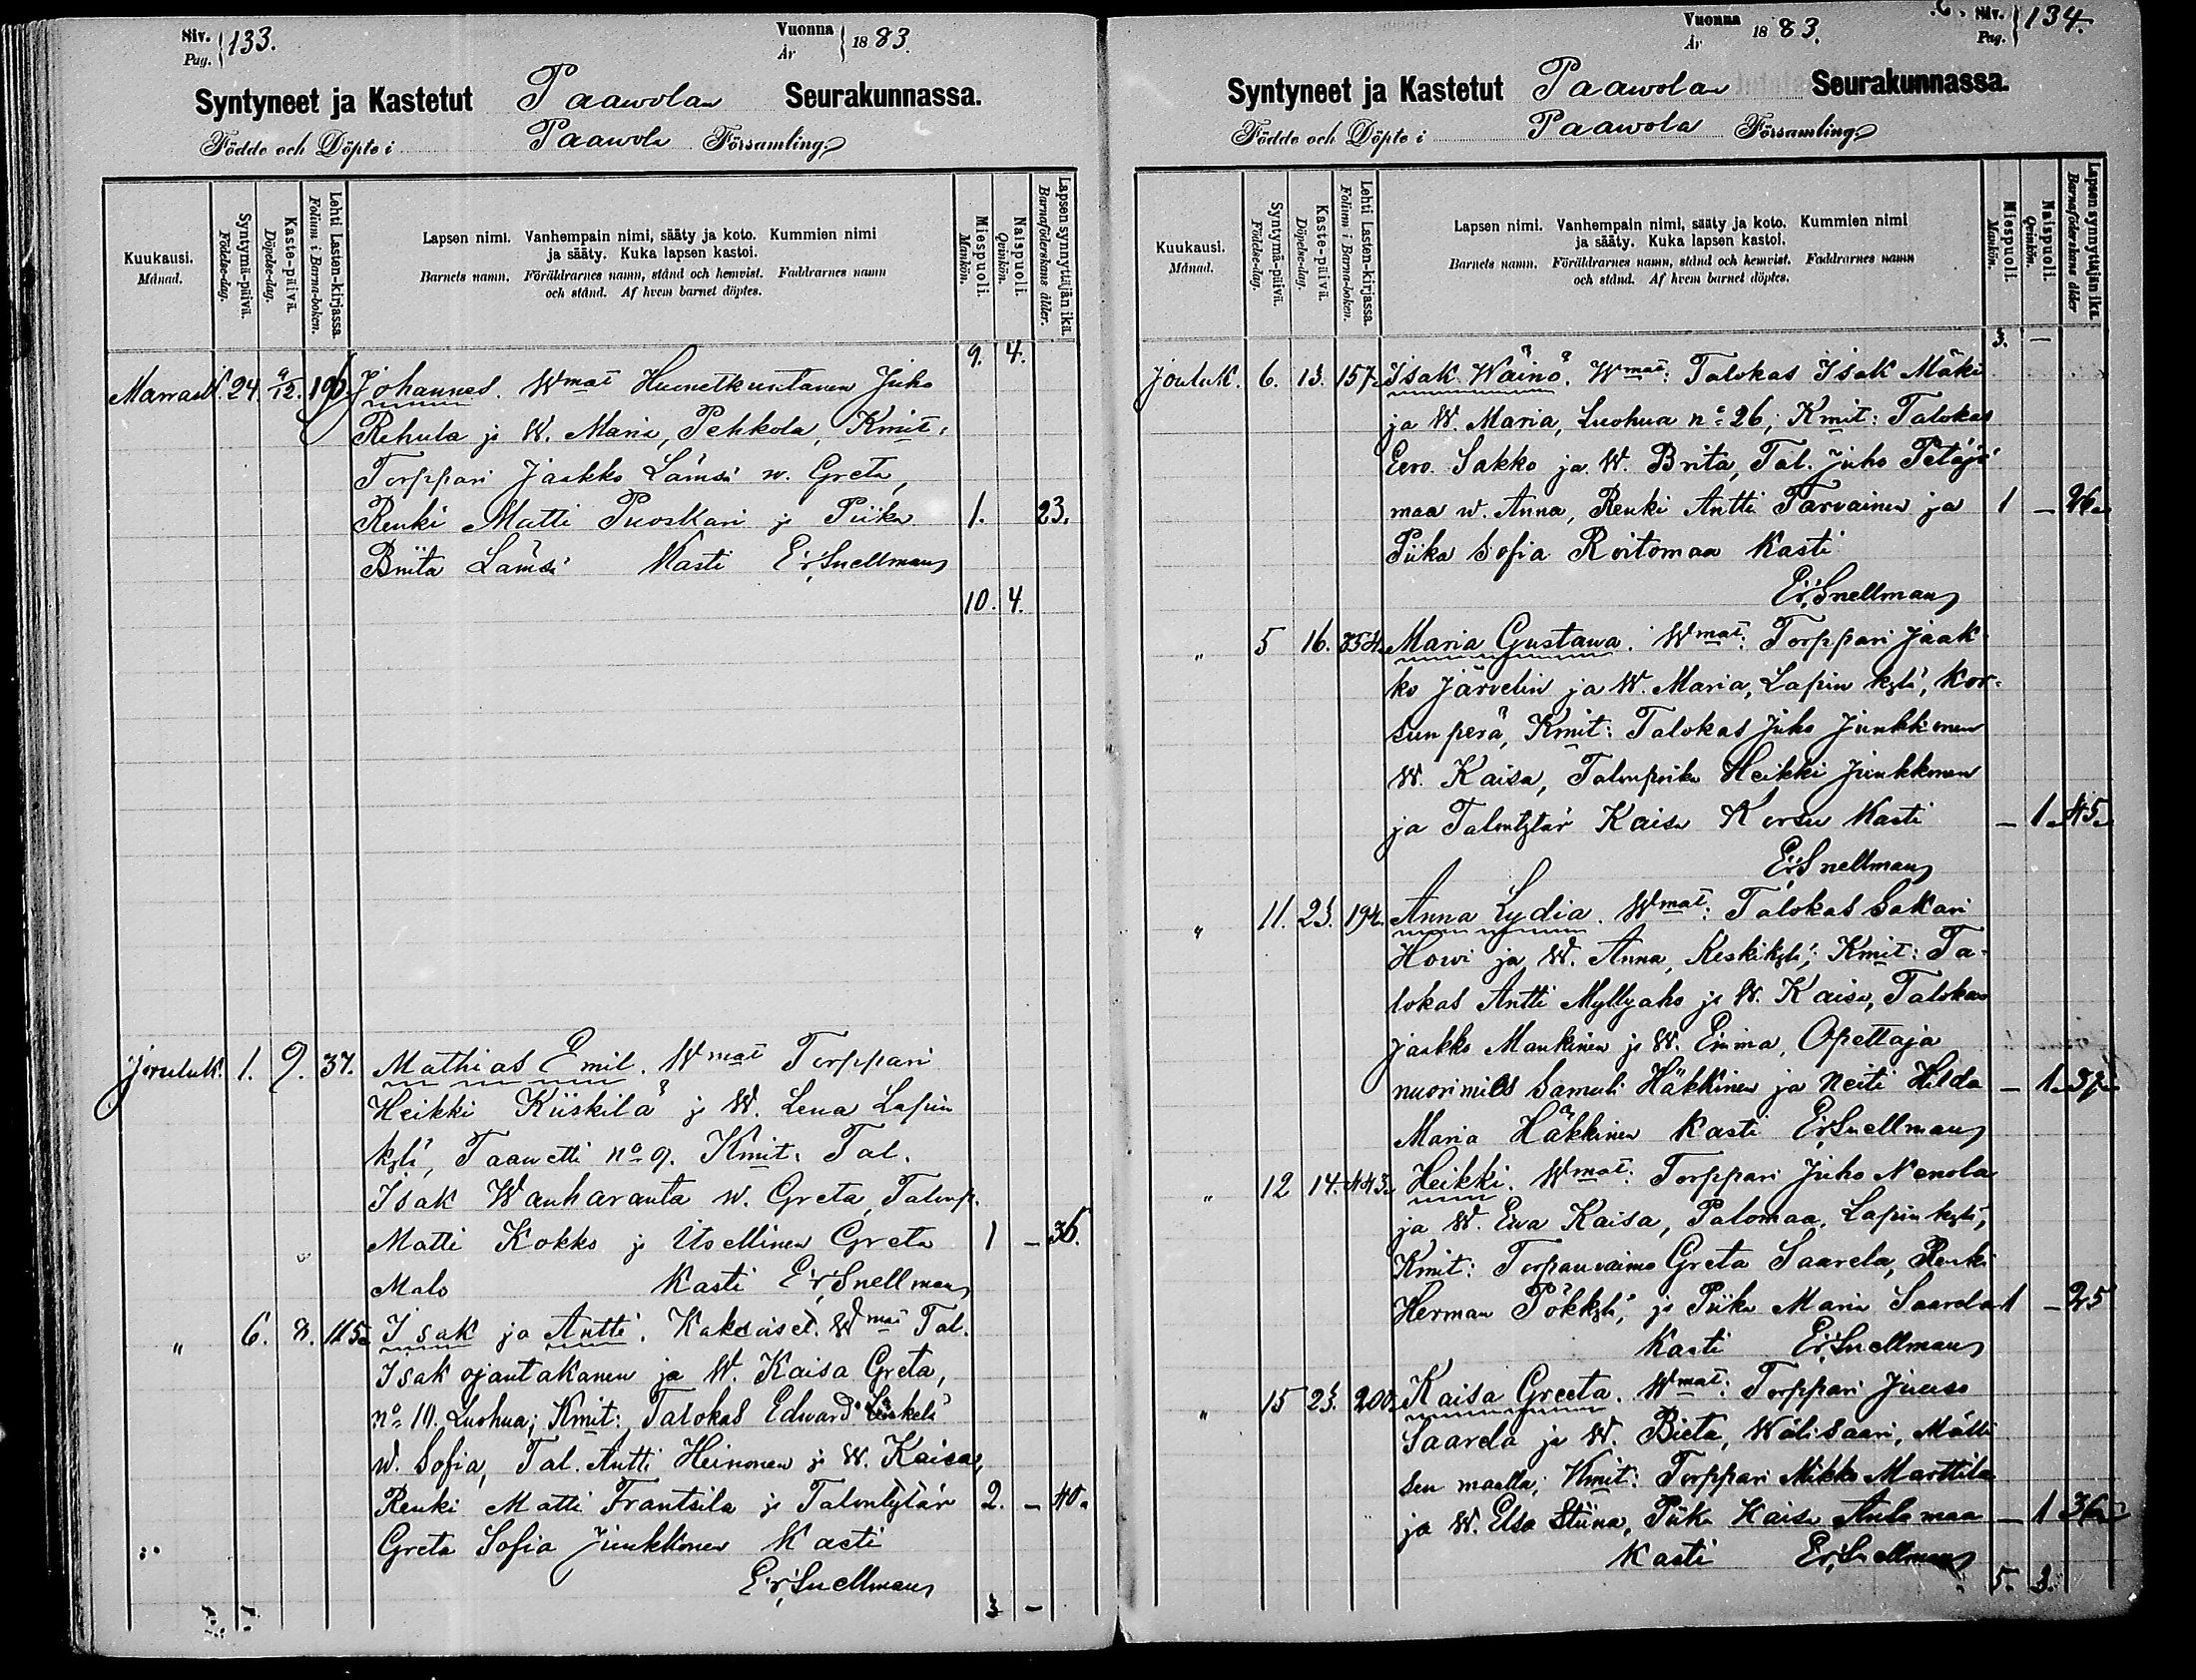 Siv. Pag. 133.
Vuonna År 1883.
Syntyneet ja Kastetut Paawolan Seurakunnassa.
Födde och Döpte i Paawola Församling
Kuukausi. Månad.
Syntymä-päivä. Födelse-dag.
Kaste-päivä. Döpelse-dag.
Lehti Lasten-kirjassa. Folium i Barna-boken.
Lapsen nimi. Vanhempain nimi, sääty ja koto. Kummien nimi
ja sääty. Kuka lapsen kastoi.
Barnets namn. Föräldrarnes namn, stånd och hemvist. Faddrarnes namn
och stånd. Af hvem barnet döptes.
Miespuoli. Mankön.
Naispuoli. Qvinkön.
Lapsen synnyttäjän ikä. Barnaföderskans ålder.
9. 4.
Marrask. 24. 9/12. Johannes. Wmat Huonetkuntanen Juho
Rehula ja W. Maria, Pehkola, Kmit:
Torppari Jaakko Lämsä w. Greta,
Renki Matti Puoskari ja Piika 1. 23.
Briita Lämsä Kasti Er. Snellman
10. 4.
Jouluk. 1. 9. 37. Mathias Emil. Wmat Torppari
Heikki Kiiskilä ja W. Lena Lapin
kylä, Taawetti no 9. Kmit: Tal.
Isak Wanharanta w. Greta, Talonp.
Matti Kokko ja Itsellinen Greta 1 – 36.
Malo Kasti Er. Snellman
" 6. 8. 115. Isak ja Antti. Kaksoiset. Wmat Tal.
Isak Ojantakanen ja W. Kaisa Greta,
no 10, Luohua; Kmit: Talokas Edward
w. Sofia, Tal. Antti Heinonen ja W. Kaisa,
Renki Matti Frantsila ja Talontytär 2. – 40.
Greta Sofia Junkkonen Kasti
Er. Snellman
3 –
Vuonna År 1883.
Siv. Pag. 134.
Syntyneet ja Kastetut Paawolan Seurakunnassa.
Födde och Döpte i Paawola Församling
Kuukausi. Månad.
Syntymä-päivä. Födelse-dag.
Kaste-päivä. Döpelse-dag.
Lehti Lasten-kirjassa. Folium i Barna-boken.
Lapsen nimi. Vanhempain nimi, sääty ja koto. Kummien nimi
ja sääty. Kuka lapsen kastoi.
Barnets namn. Föräldrarnes namn, stånd och hemvist. Faddrarnes namn
och stånd. Af hvem barnet döptes.
Miespuoli. Mankön.
Naispuoli. Qvinkön.
Lapsen synnyttäjän ikä. Barnaföderskans ålder
3. –
Jouluk. 6. 13. 157. Isak Wäinö. Wmat: Talokas Isak Mäki
ja W. Maria, Luohua no 26; Kmit: Talokas
Eero Sakko ja W. Brita, Tal. Juho Petäjä
maa w. Anna, Renki Antti Tarvainen ja 1 – 26.
Piika Sofia Roitomaa Kasti
Er. Snellman
" 5 16. 354. Maria Gustawa. Wmat: Torppari Jaak
ko Järvelin ja W. Maria, Lapin kylä, Kor-
sun perä, Kmit: Talokas Juho Junkkonen
W. Kaisa, Talonpoika Heikki Junkkonen
ja Talontytär Kaisa Korsu Kasti – 1. 45.
Er. Snellman
" 11. 23. 194. Anna Lydia. Wmat: Talokas Sakari
Howi ja W. Anna, Keskikylä; Kmit: Ta-
lokas Antti Myllyaho ja W. Kaisa, Talokas
Jaakko Mankinen ja W. Emma, Opettaja
nuorimies Samuli Häkkinen ja Neiti Hilda – 1. 37.
Maria Häkkinen Kasti Er. Snellman
" 12 14. 443. Heikki. Wmat: Torppari Juho Nenola
ja W. Ewa Kaisa, Palomaa, Lapin kylä,
Kmit: Torpanvaimo Greta Saarela, Renki
Herman Pökkylä, ja Piika Maria Saarela 1 – 25
Kasti Er. Snellman
" 15 23. 200. Kaisa Greeta. Wmat: Torppari Juuso
Saarela ja W. Brieta, Wälisaari, Mätti
sen maalla; Kmit: Torppari Mikko Marttila
ja W. Elsa Stiina, Piika Kaisa – 1 36.
Kasti Er. Snellman
5. 3.